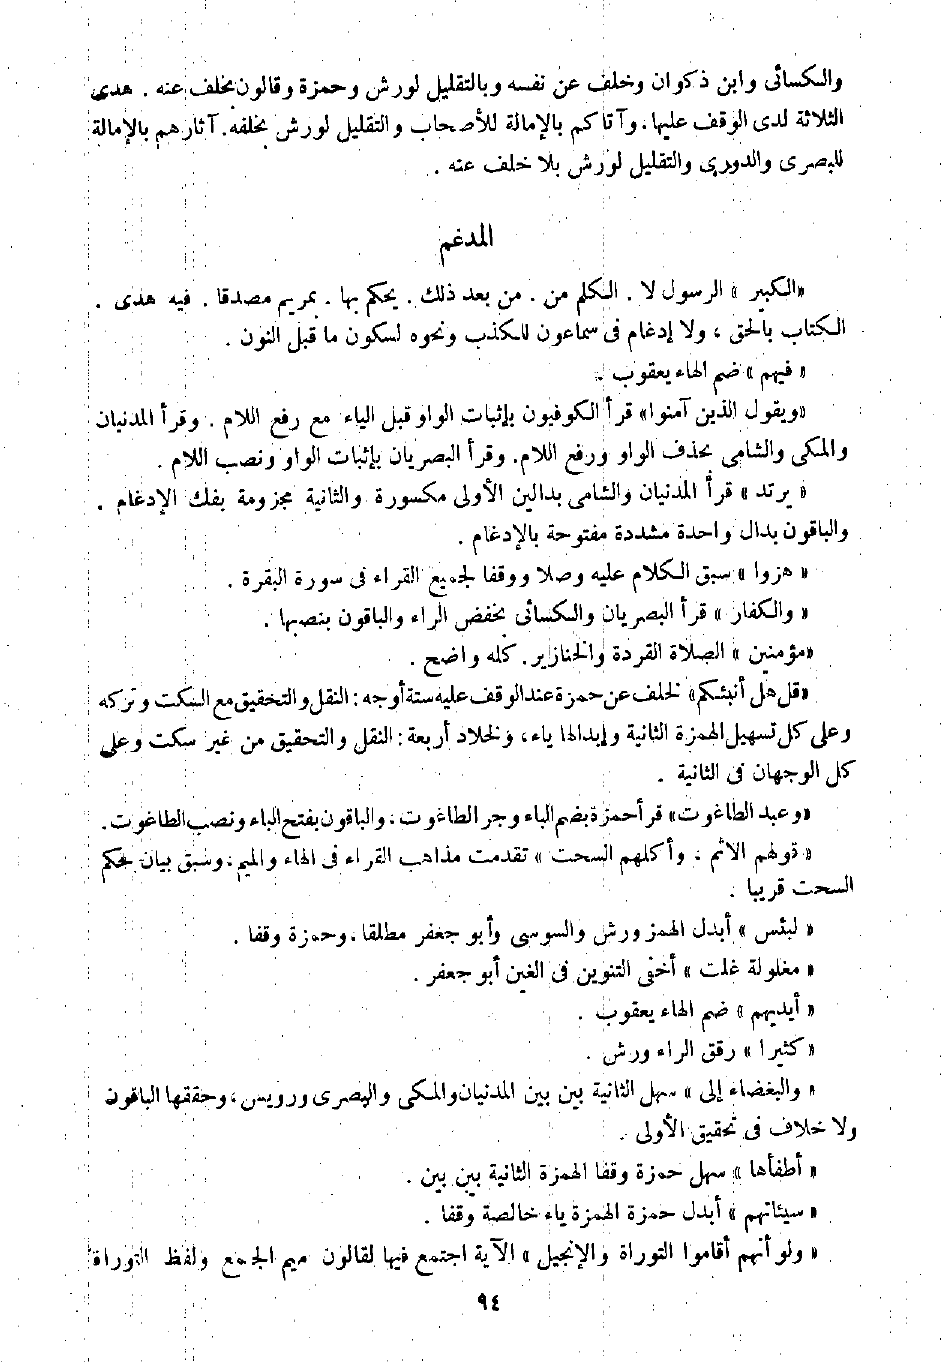 والكسائى وابن ذكوان وخلف عن نفسه وبالتقليل لورش وحمزة وقالون بخلف عنه . هدى
الثلاثة لدى الوقف عليها . وآتاكم بالإمالة للأصحاب والتقليل لورش بخلفه . آثارهم بالإمالة
للبصرى والدورى والتقليل لورش بلا خلف عنه .
المدغم
«الكبير» الرسول لا . الكلم من . من بعد ذلك . يحكم بها . بمريم مصدقا . فيه هدى .
الكتاب بالحق ، ولا إدغام فى سماعون للكذب ونحوه لسكون ما قبل النون .
« فيهم » ضم الهاء يعقوب .
«ويقول الذين آمنوا» قرأ الكوفيون بإثبات الواو قبل الياء مع رفع اللام . وقرأ المدنيان
والمكى والشامى بحذف الواو ورفع اللام . وقرأ البصريان بإثبات الواو ونصب اللام .
« يرتد » قرأ المدنيان والشامى بدالين الأولى مكسورة والثانية مجزومة بفك الإدغام .
والباقون بدال واحدة مشددة مفتوحة بالإدغام .
« هزوا » سبق الكلام عليه وصلا ووقفا لجميع القراء فى سورة البقرة .
« والكفار » قرأ البصريان والكسائى بخفض الراء والباقون بنصبها .
«مؤمنين » الصلاة القردة والخنازير . كله واضح .
«قل هل أنبئكم» لخلف عن حمزة عند الوقف عليه ستة أوجه : النقل والتحقيق مع السكت وتركه
وعلى كل تسهيل الهمزة الثانية وإبدالها ياء ، ولخلاد أربعة : النقل والتحقيق من غير سكت وعلى
كل الوجهان فى الثانية .
«وعبد الطاغوت» قرأ حمزة بضم الباء وجر الطاغوت ، والباقون بفتح الباء ونصب الطاغوت .
« قولهم الاثم . وأكلهم السحت » تقدمت مذاهب القراء فى الهاء والميم ، وسبق بيان حكم
السحت قريبا .
« لبئس » أبدل الهمز ورش والسوسى وأبو جعفر مطلقا ، وحمزة وقفا .
« مغلولة غلت » أخفى التنوين فى الغين أبو جعفر .
« أيديهم » ضم الهاء يعقوب .
« كثيرا » رقق الراء ورش .
« والبغضاء إلى » سهل الثانية بين بين المدنيان والمكى والبصرى ورويس ، وحققها الباقون
ولا خلاف فى تحقيق الأولى .
« أطفأها » سهل حمزة وقفا الهمزة الثانية بين بين .
« سيئاتهم » أبدل حمزة الهمزة ياء خالصة وقفا .
« ولو أنهم أقاموا التوراة والإنجيل » الآية اجتمع فيها لقالون ميم الجمع ولفظ التوراة
٩٤